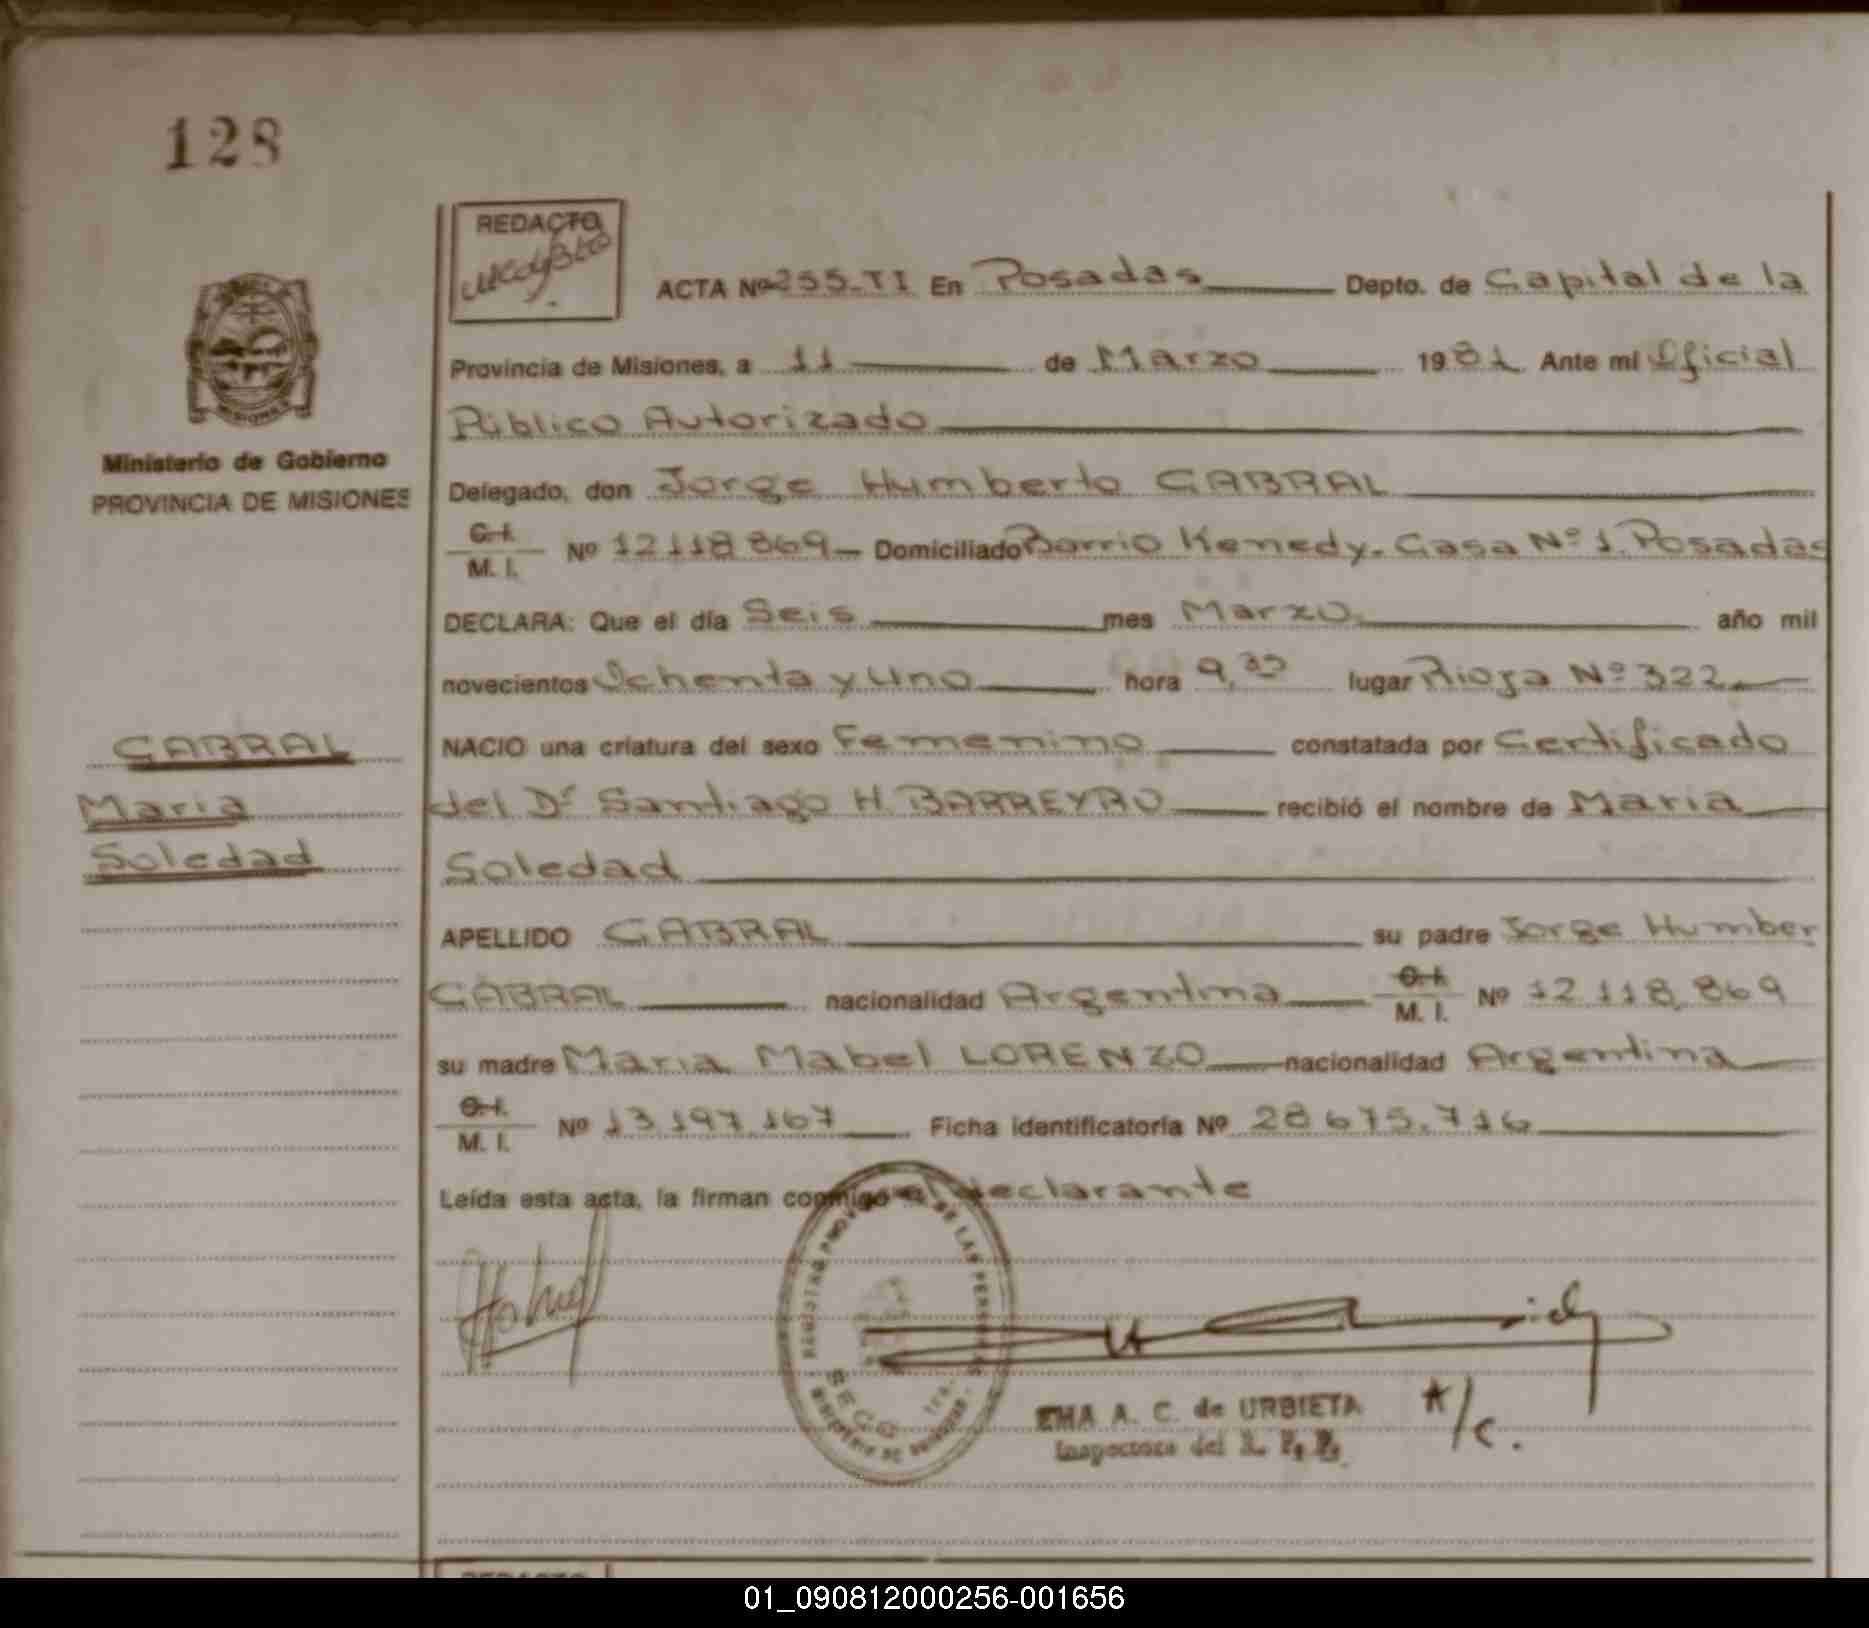 128
REDACTO
ACTA Nº 255-TI En Posadas Depto. de Capital de la
Provincia de Misiones, a 11 de Marzo 1981 Ante mí Oficial
Público Autorizado
Ministerio de Gobierno
PROVINCIA DE MISIONES
Delegado, don Jorge Humberto CABRAL
C.I.
M. I. Nº 12.118.869 Domiciliado Barrio Kenedy. Casa Nº 1. Posadas
DECLARA: Que el día Seis mes Marzo año mil
novecientos Ochenta y Uno hora 9,30 lugar Rioja Nº 322
CABRAL
María
Soledad
NACIO una criatura del sexo Femenino constatada por Certificado
del Dr Santiago H. BARREYRO recibió el nombre de María
Soledad
APELLIDO CABRAL su padre Jorge Humber
CABRAL nacionalidad Argentina C.I.
M. I. Nº 12.118.869
su madre María Mabel LORENZO nacionalidad Argentina
C.I.
M. I. Nº 13.197.167 Ficha identificatoria Nº 28.675.716
Leída esta acta, la firman conmigo el declarante
DE LAS PERSONAS
EMA A. C. de URBIETA
A/C.
Inspectora del R. P. P.
REDACTO
01_090812000256-001656